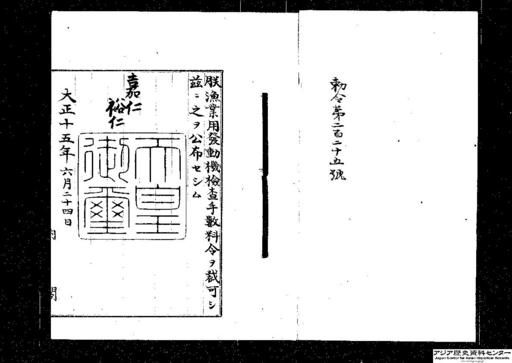 勅令第二百二十五號
朕漁業用發動機檢査手數料令ヲ裁可シ
茲ニ之ヲ公布セシム
嘉仁
裕仁
天皇
御璽
大正十五年六月二十四日
内閣
アジア歴史資料センター
Japan Center for Asian Historical Records